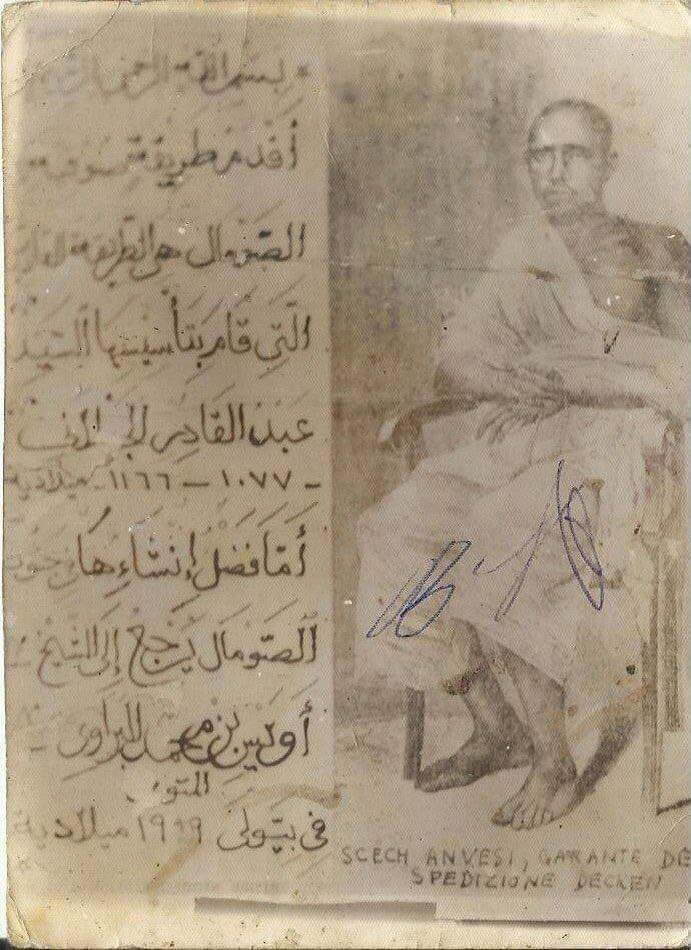 بسم الله الرحمن
أقدم طريقة صوفية
الصومال هي الطريقة
التي قام بتأسيسها السيد
عبد القادر
- ١٠٧٧ – ١١٦٦ - ميلادية
أمّا فضل إنشاءها
الصومال يرجع إلى الشيخ
أويس بن محمد البراوي
المتو
في بيولى ١٩٩٩ ميلادية
SCECH ANVESI, GARANTE DE
SPEDIZIONE DECKEN